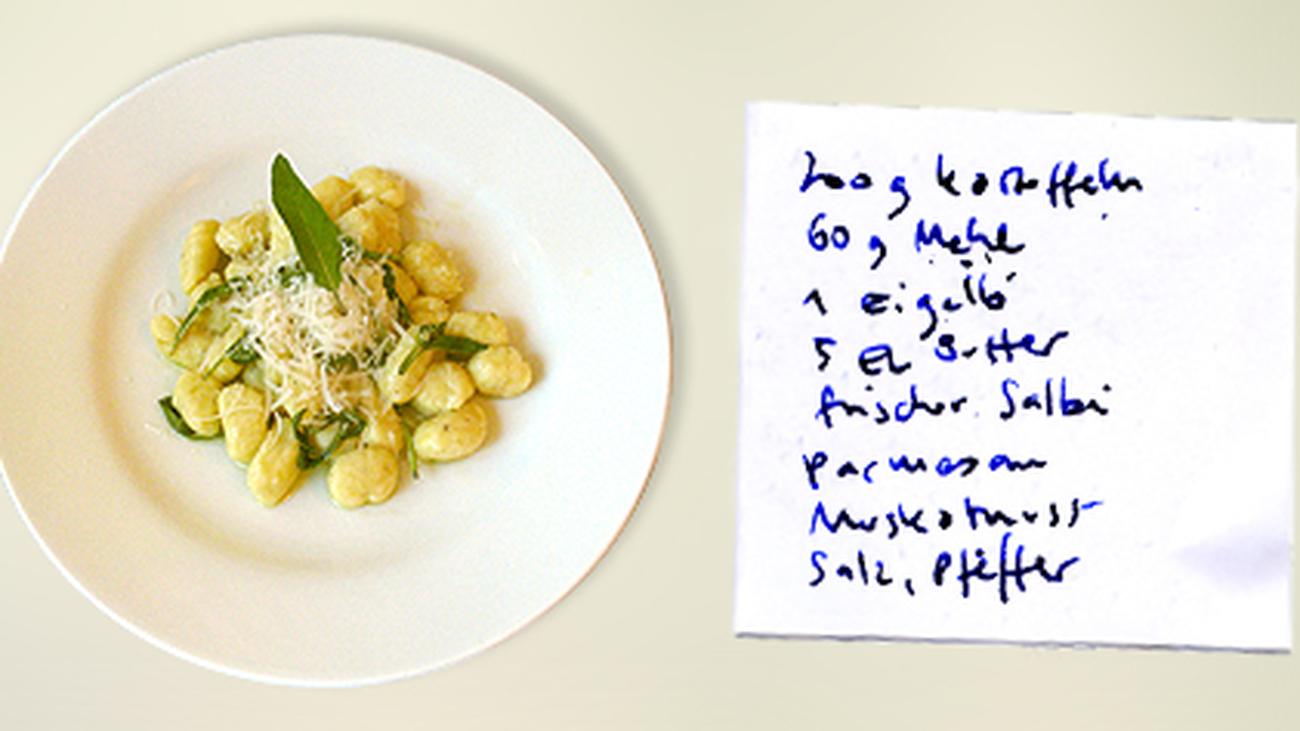 200 g Kartoffeln
60 g Mehl
1 Eigelb
5 EL Butter
frischer Salbei
Parmesan
Muskatnuss
Salz, Pfeffer